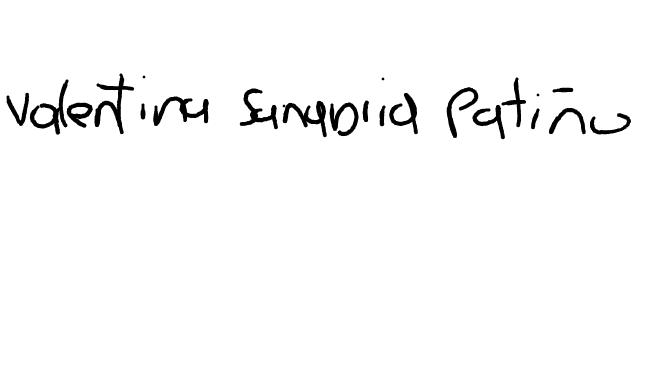 Valentina Sanabria Patiño